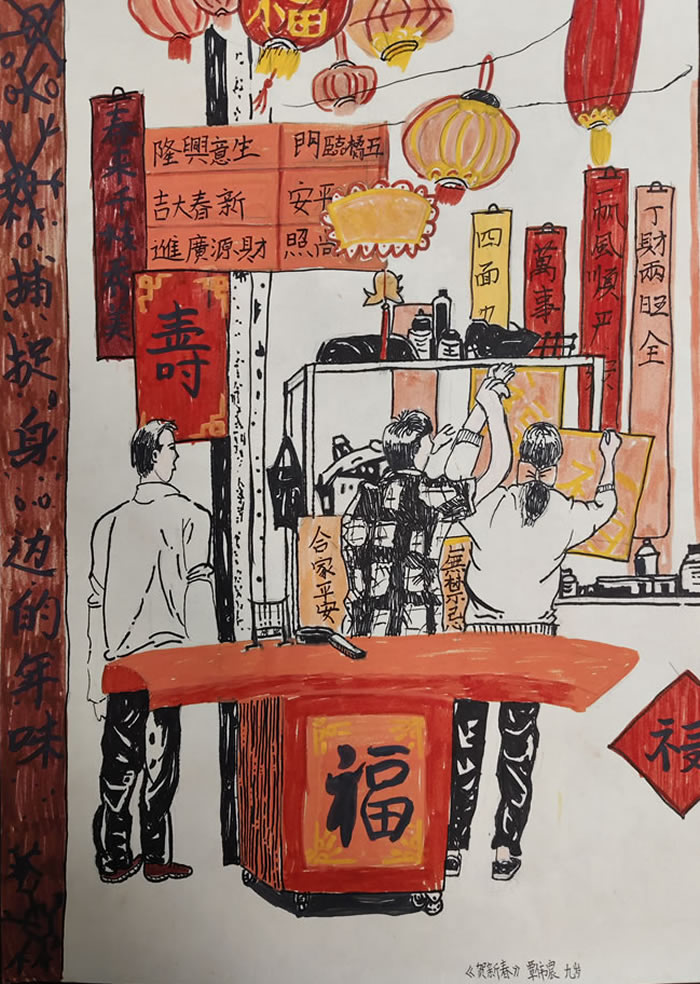 福
捕捉身边的年味
春來千枝秀美
生意興隆
臨門
新春大吉
平安
財源廣進
照
壽
四面
萬事
一帆風順
丁財兩旺全
合家平安
無禁忌
福
福
《贺新春》